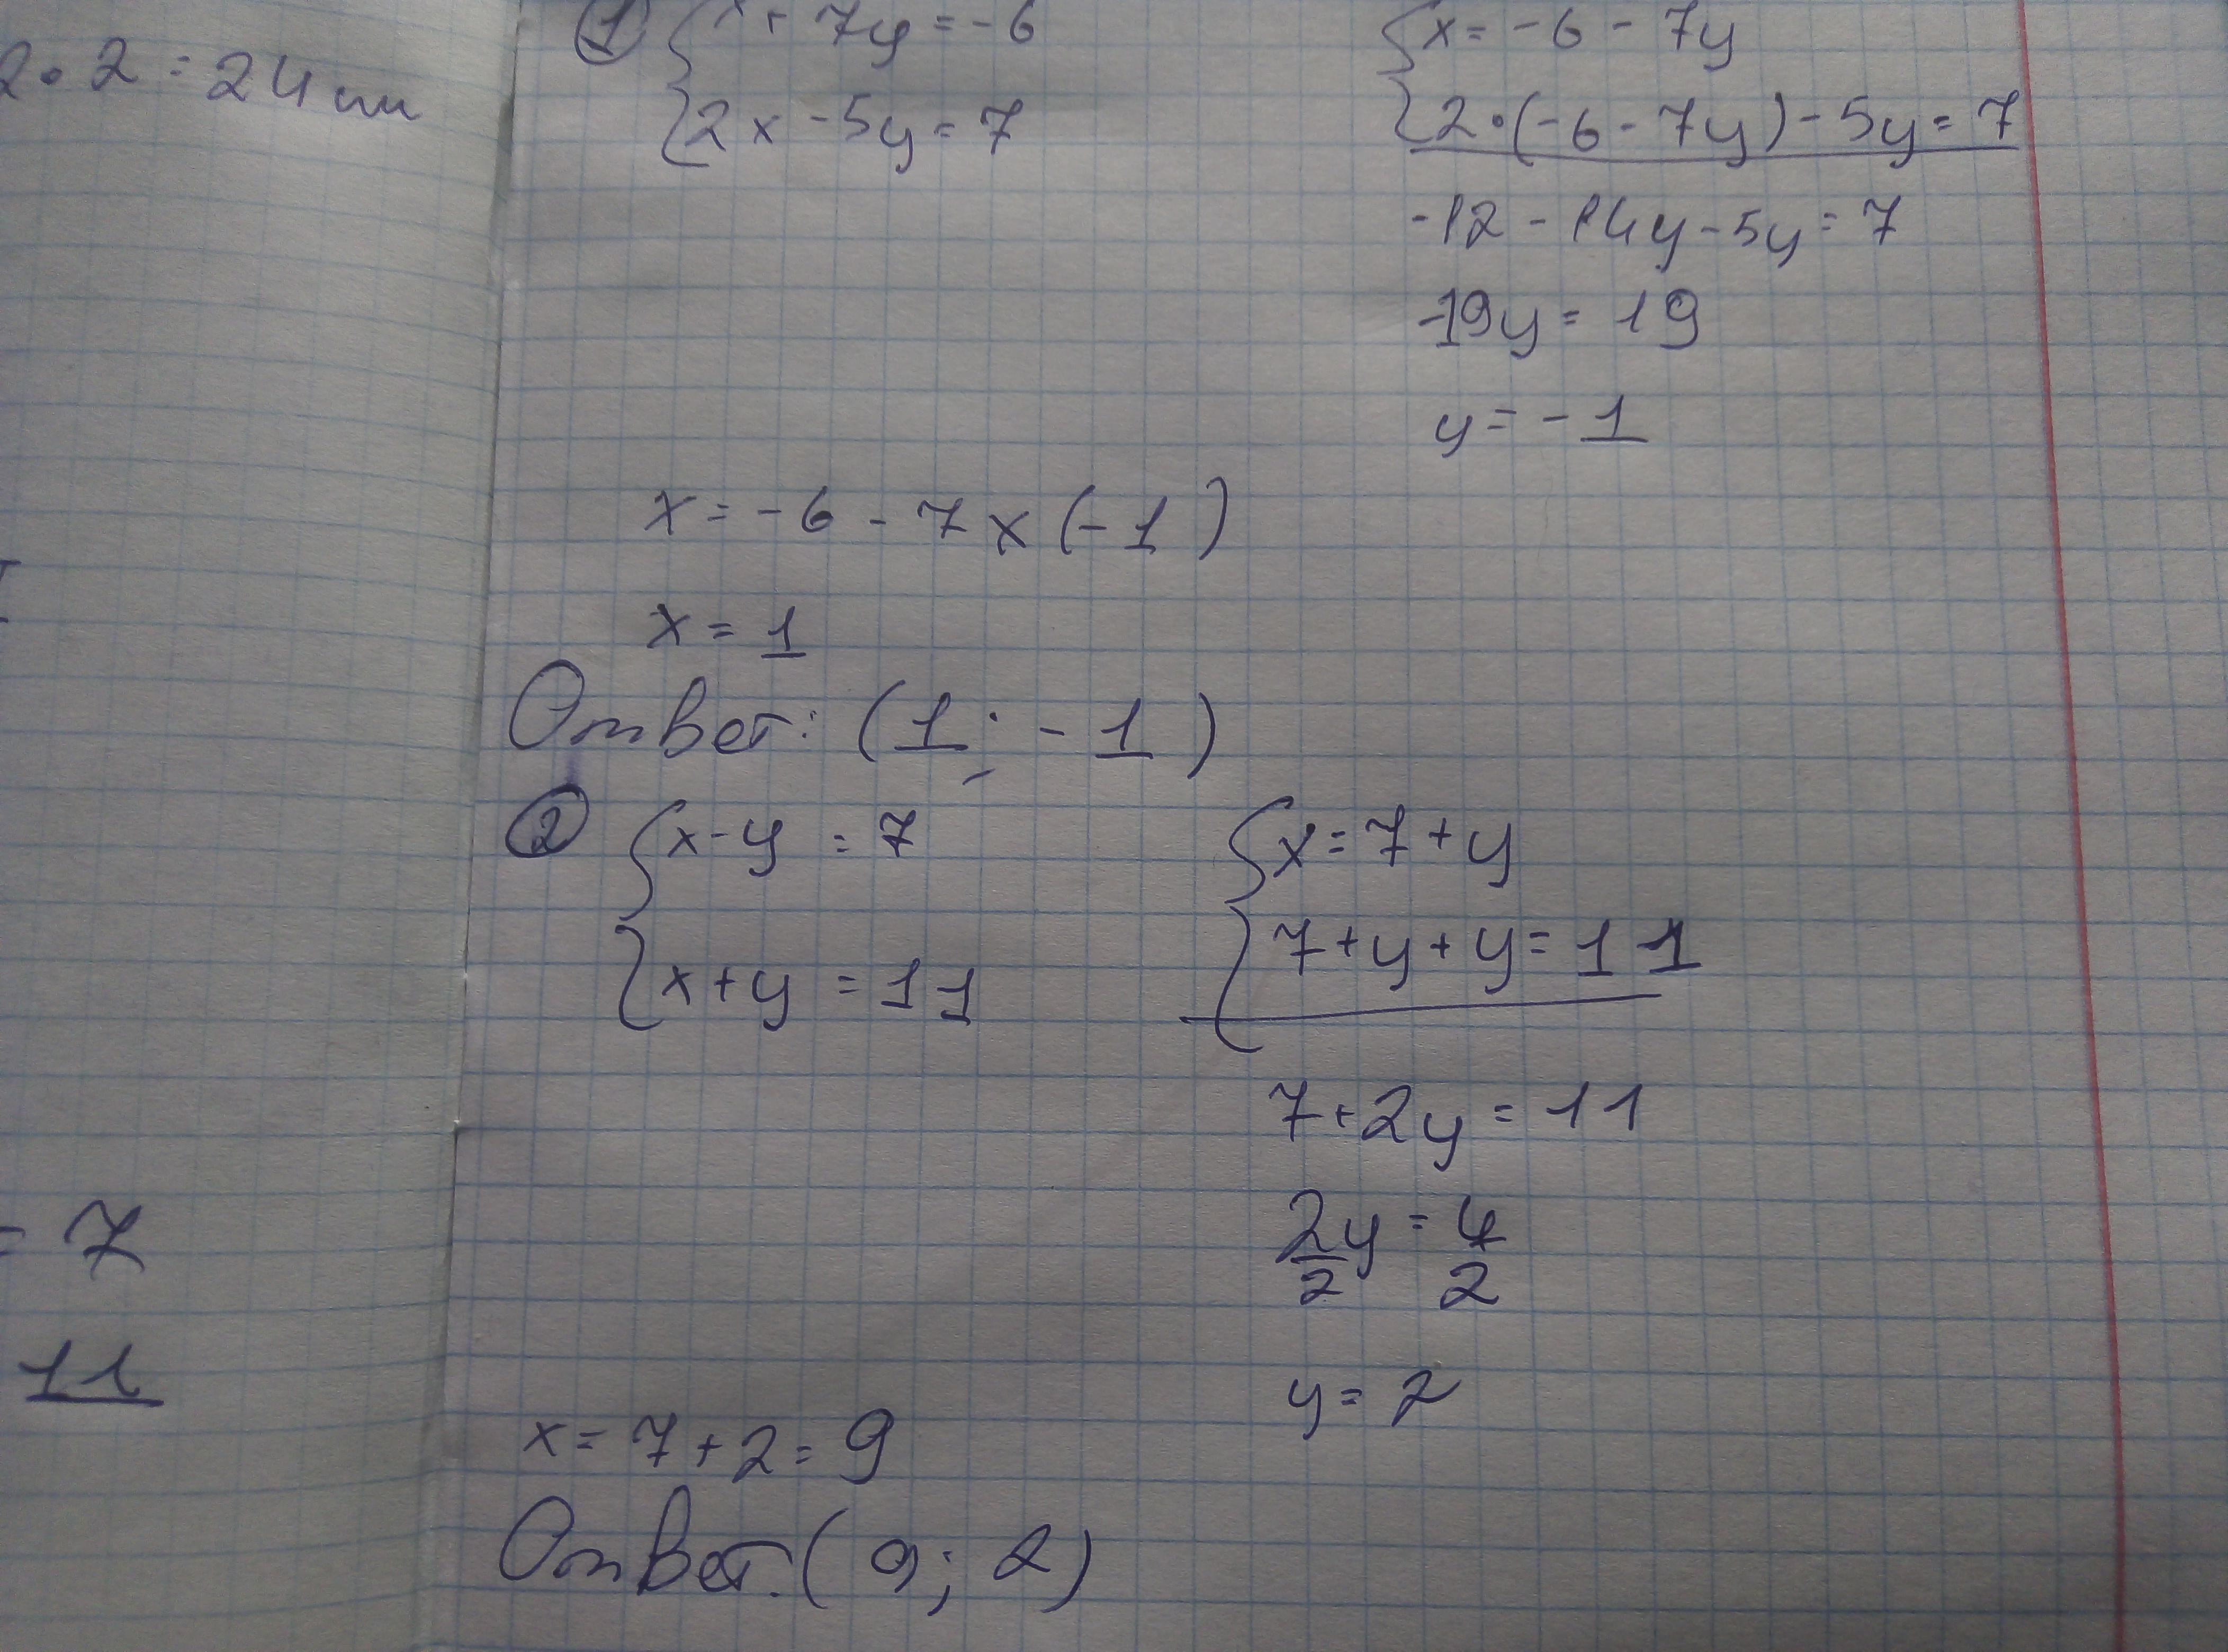 2 · 2 = 24 см
= 7
11
① { x + 7y = -6
2x - 5y = 7
{ x = -6 - 7y
2·(-6 - 7y) - 5y = 7
-12 - 14y - 5y = 7
-19y = 19
y = -1
x = -6 - 7 x (-1)
x = 1
Ответ: (1; -1)
② { x - y = 7
x + y = 11
{ x = 7 + y
7 + y + y = 11
7 + 2y = 11
2y = 4
2 2
y = 2
x = 7 + 2 = 9
Ответ: (9; 2)